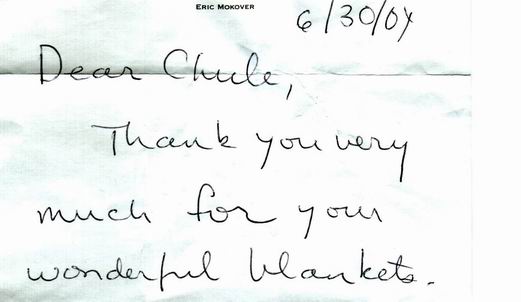 Eric Mokover
6/30/04
Dear Chule,
Thank you very
much for your
wonderful blankets.